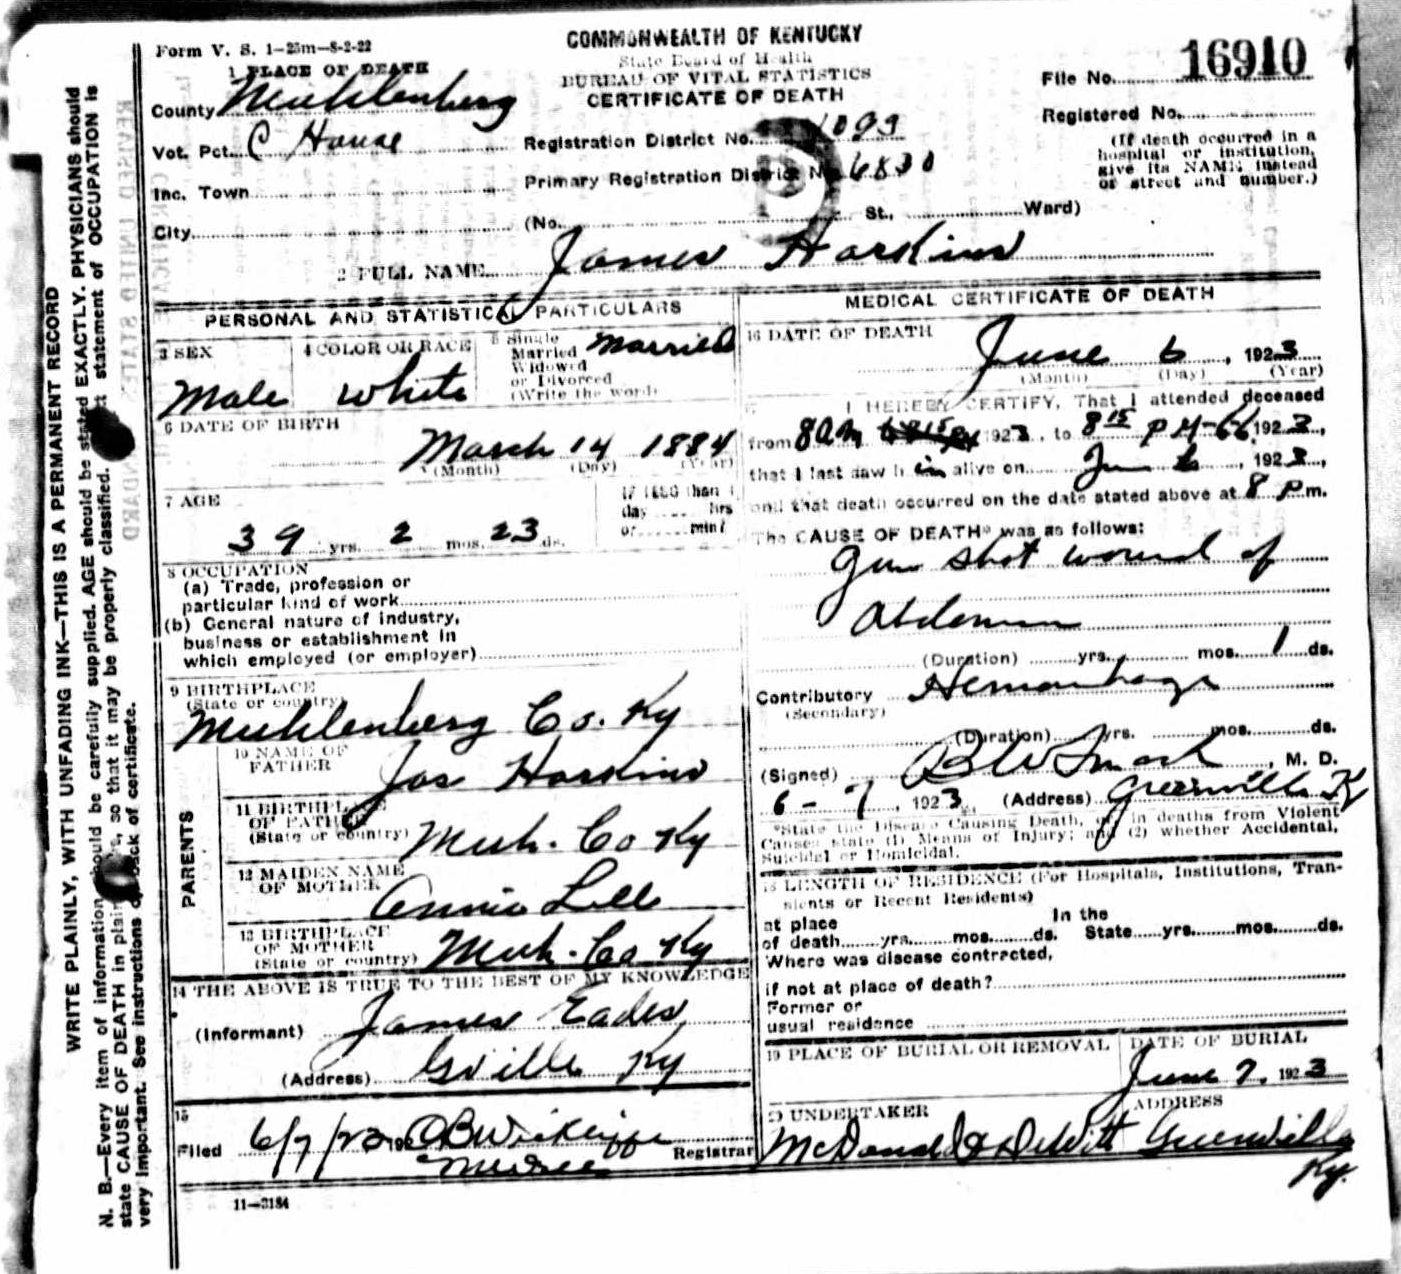 Form V. S. 1-25m-8-2-22
COMMONWEALTH OF KENTUCKY
State Board of Health
BUREAU OF VITAL STATISTICS
CERTIFICATE OF DEATH
File No. 16910
Registered No.
(If death occurred in a
hospital or institution,
give its NAME instead
of street and number.)
1 PLACE OF DEATH
County Muhlenberg
Vot. Pct. C House
Inc. Town
City
Registration District No. 1099
Primary Registration District No. 6830
(No. St., Ward)
2 FULL NAME James Harkins
PERSONAL AND STATISTICAL PARTICULARS
3 SEX
Male
4 COLOR OR RACE
White
5 Single
Married
Widowed
or Divorced
(Write the word)
Married
6 DATE OF BIRTH
March 14 1884
(Month) (Day) (Year)
7 AGE
39 yrs. 2 mos. 23 ds.
If LESS than 1
day hrs
or min?
8 OCCUPATION
(a) Trade, profession or
particular kind of work
(b) General nature of industry,
business or establishment in
which employed (or employer)
9 BIRTHPLACE
(State or country)
Muhlenberg Co. Ky
PARENTS
10 NAME OF
FATHER
Jas Harkins
11 BIRTHPLACE
OF FATHER
(State or country)
Muh. Co Ky
12 MAIDEN NAME
OF MOTHER
Annie Lell
13 BIRTHPLACE
OF MOTHER
(State or country)
Muh. Co Ky
14 THE ABOVE IS TRUE TO THE BEST OF MY KNOWLEDGE
(Informant) James Eades
(Address) Gville Ky
15
Filed 6/7/23 192
Registrar
11-3184
MEDICAL CERTIFICATE OF DEATH
16 DATE OF DEATH
June 6, 1923
(Month) (Day) (Year)
I HEREBY CERTIFY, That I attended deceased
from 8 am 1923, to 8 15 PM 6-6 1923,
that I last saw him alive on June 6, 1923,
and that death occurred on the date stated above at 8 P m.
The CAUSE OF DEATH* was as follows:
Gun shot wound of
Abdomen
(Duration) yrs. mos. 1 ds.
Contributory Hemorrhage
(Secondary)
(Duration) yrs. mos. ds.
(Signed) , M. D.
6-7, 1923 (Address) Greenville Ky
*State the Disease Causing Death, or, in deaths from Violent
Causes state (1) Means of Injury; and (2) whether Accidental,
Suicidal or Homicidal.
18 LENGTH OF RESIDENCE (For Hospitals, Institutions, Tran-
sients or Recent Residents)
at place In the
of death yrs. mos. ds. State yrs. mos. ds.
Where was disease contracted,
if not at place of death?
Former or
usual residence
19 PLACE OF BURIAL OR REMOVAL
DATE OF BURIAL
June 7, 1923
20 UNDERTAKER
ADDRESS
McDonald & DeWitt Greenville
Ky.
WRITE PLAINLY, WITH UNFADING INK—THIS IS A PERMANENT RECORD
N. B.—Every item of information should be carefully supplied. AGE should be stated EXACTLY. PHYSICIANS should
state CAUSE OF DEATH in plain terms, so that it may be properly classified. Exact statement of OCCUPATION is
very important. See instructions on back of certificate.